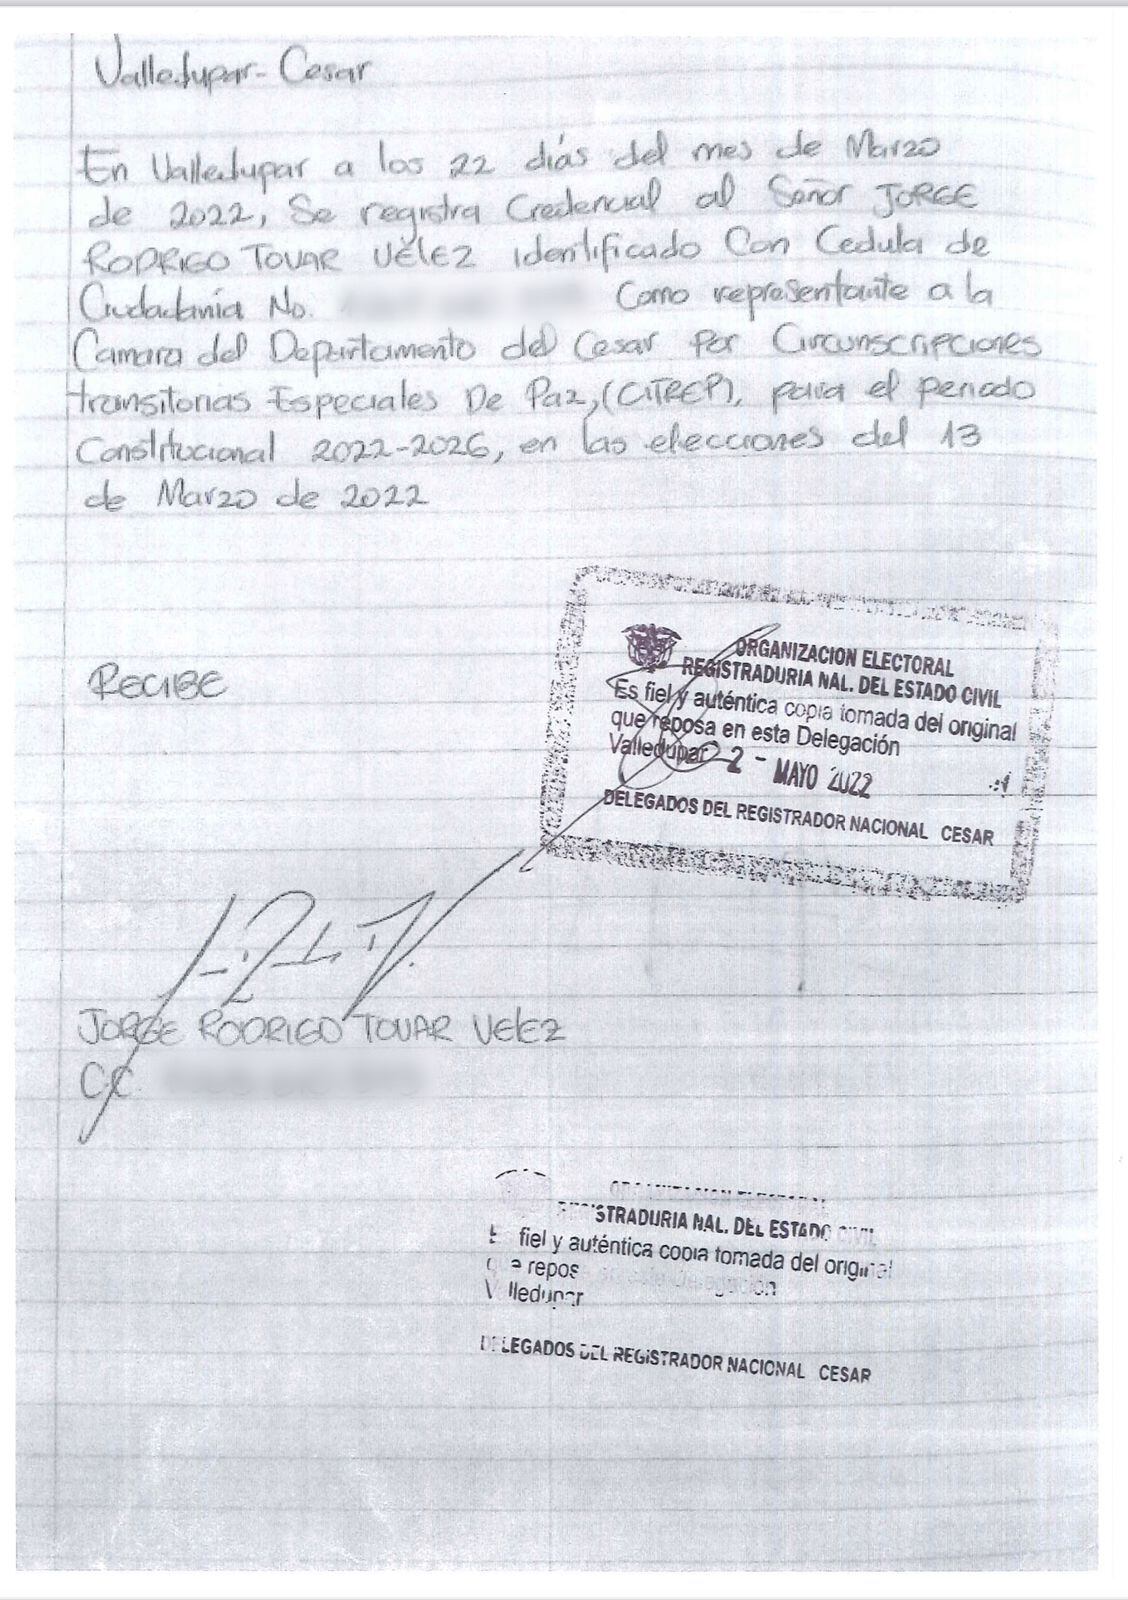 Valledupar - Cesar
En Valledupar a los 22 días del mes de Marzo
de 2022, Se registra Credencial al Señor JORGE
RODRIGO TOVAR VÉLEZ identificado Con Cedula de
Ciudadanía No. Como representante a la
Camara del Departamento del Cesar Por Circunscripciones
transitorias Especiales De Paz, (CITREP), para el periodo
Constitucional 2022-2026, en las elecciones del 13
de Marzo de 2022
RECIBE
ORGANIZACION ELECTORAL
REGISTRADURIA NAL. DEL ESTADO CIVIL
Es fiel y auténtica copia tomada del original
que reposa en esta Delegación
Valledupar 2 - MAYO 2022
DELEGADOS DEL REGISTRADOR NACIONAL CESAR
JORGE RODRIGO TOVAR VELEZ
CC
STRADURIA NAL. DEL ESTADO CIVIL
fiel y auténtica copia tomada del original
que repos Delegación
Valledupar
DELEGADOS DEL REGISTRADOR NACIONAL CESAR